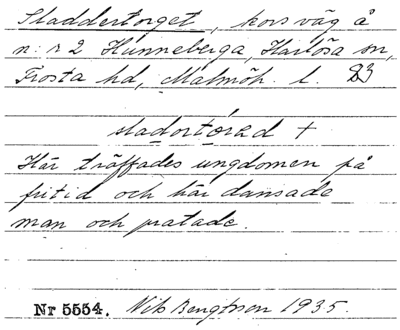 Sladdertorget, korsväg å
n:r 2 Hunneberga, Harlösa sn,
Frosta hd, Malmöh. l. 23
sladortórad +
Här träffades ungdomen på
fritid och här dansade
man och pratade.
Nr 5554. Nils Bengtsson 1935.